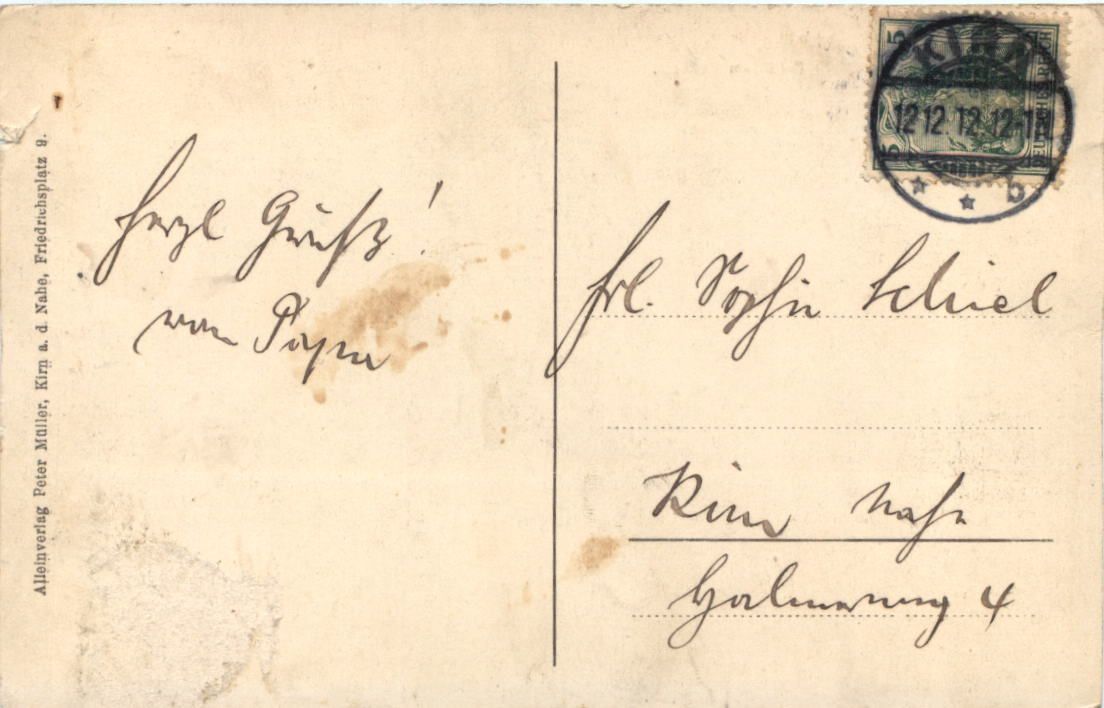 Alleinverlag Peter Müller, Kirn a. d. Nahe, Friedrichsplatz 9.
Herzl Grüße!
von Papa
KIRN
12.12.12.12-1
b
5
5
DEUTSCHES REICH
Frl. Sophie Schiel
Kirn Nahe
4